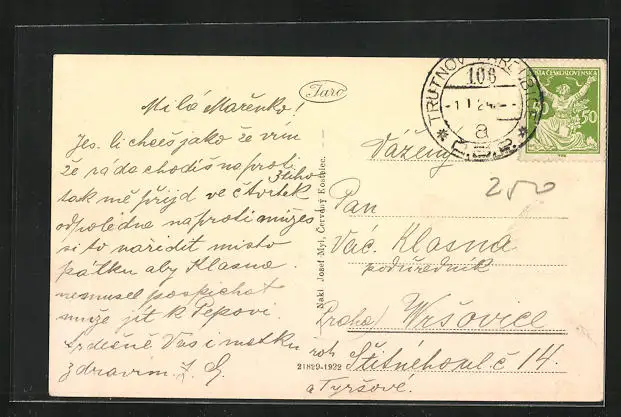 Faro
Milá Mařenko!
Jes. li chceš jako že vím
že ráda chodíš naproti
tak mě přijd ve čtvrtek 3tího
odpoledne naproti můžes
si to nařídit místo
pátku aby Klasna
nemusel pospíchat
může jít k Pepovi
Srdečně Vás i matku
zdravím. J. G.
Nakl. Josef Myl, Červený Kostelec.
21829-1922
TRUTNOV
106
-1 I 24
a
POŠTA ČESKOSLOVENSKÁ
50 50
Vážený
250
Pan
Vác. Klasna
podúředník
Praha Vršovice
roh Štítného ul. č 14.
a Tyršové.